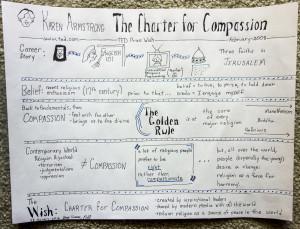 KAREN ARMSTRONG The Charter for Compassion
www.ted.com TED Prize Wish February 2008
Career Story
ENGLISH 101
Three faiths in
JERUSALEM
Belief: recent religious enthusiasm (17th century) prior to that... belief = to love, to prize, to hold dear
credo = I engage myself
Back to fundamentals, then
COMPASSION - feel with the other
- brings us to the divine
The Golden Rule
is the core of every major religion
Buddha
Confucius
Contemporary World
Religion hijacked
- terrorism
- judgementalism
- oppression
≠ COMPASSION
a lot of religious people prefer to be right rather than compassionate
... but, all over the world, people (especially the young) desire a change: religion as a force for harmony.
The Wish: CHARTER for COMPASSION
- created by inspirational leaders
- shared by modern media with all the world
- restore religion as a source of peace in the world.